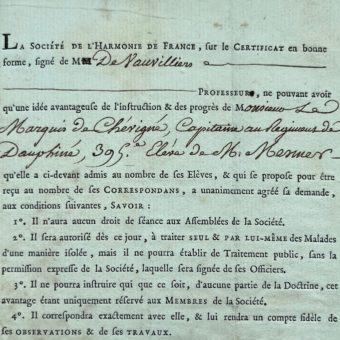 LA SOCIÉTÉ DE L'HARMONIE DE FRANCE, sur le CERTIFICAT en bonne
forme, signé de MM De Vauvilliers
PROFESSEURS, ne pouvant avoir
qu'une idée avantageuse de l'instruction & des progrès de Monsieur Le
Marquis de Chévigné, Capitaine au Regiment de
Dauphiné, 395.e Elève de M. Mesmer
qu'elle a ci-devant admis au nombre de ses Elèves, & qui se propose pour être
reçu au nombre de ses CORRESPONDANS, a unanimement agréé sa demande,
aux conditions suivantes, SAVOIR :
1°. Il n'aura aucun droit de séance aux Assemblées de la Société.
2°. Il sera autorisé dès ce jour, à traiter SEUL & PAR LUI-MÊME des Malades
d'une manière isolée, mais il ne pourra établir de Traitement public, sans la
permission expresse de la Société, laquelle sera signée de ses Officiers.
3°. Il ne pourra instruire qui que ce soit, d'aucune partie de la Doctrine, cet
avantage étant uniquement réservé aux MEMBRES de la Société.
4°. Il correspondra exactement avec elle, & lui rendra un compte fidèle de
ses OBSERVATIONS & de ses TRAVAUX.